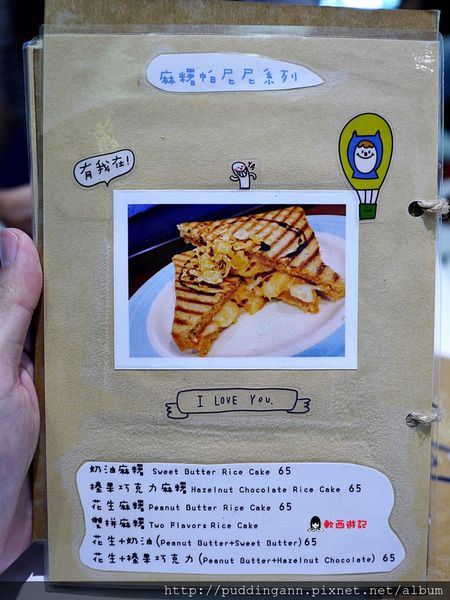 麻糬帕尼尼系列
有我在!
I LOVE YOU.
奶油麻糬 Sweet Butter Rice Cake 65
榛果巧克力麻糬 Hazelnut Chocolate Rice Cake 65
花生麻糬 Peanut Butter Rice Cake 65
雙拼麻糬 Two Flavors Rice Cake
軟西遊記
花生+奶油(Peanut Butter+Sweet Butter)65
花生+榛果巧克力(Peanut Butter+Hazelnut Chocolate) 65
http://puddingann.pixnet.net/album